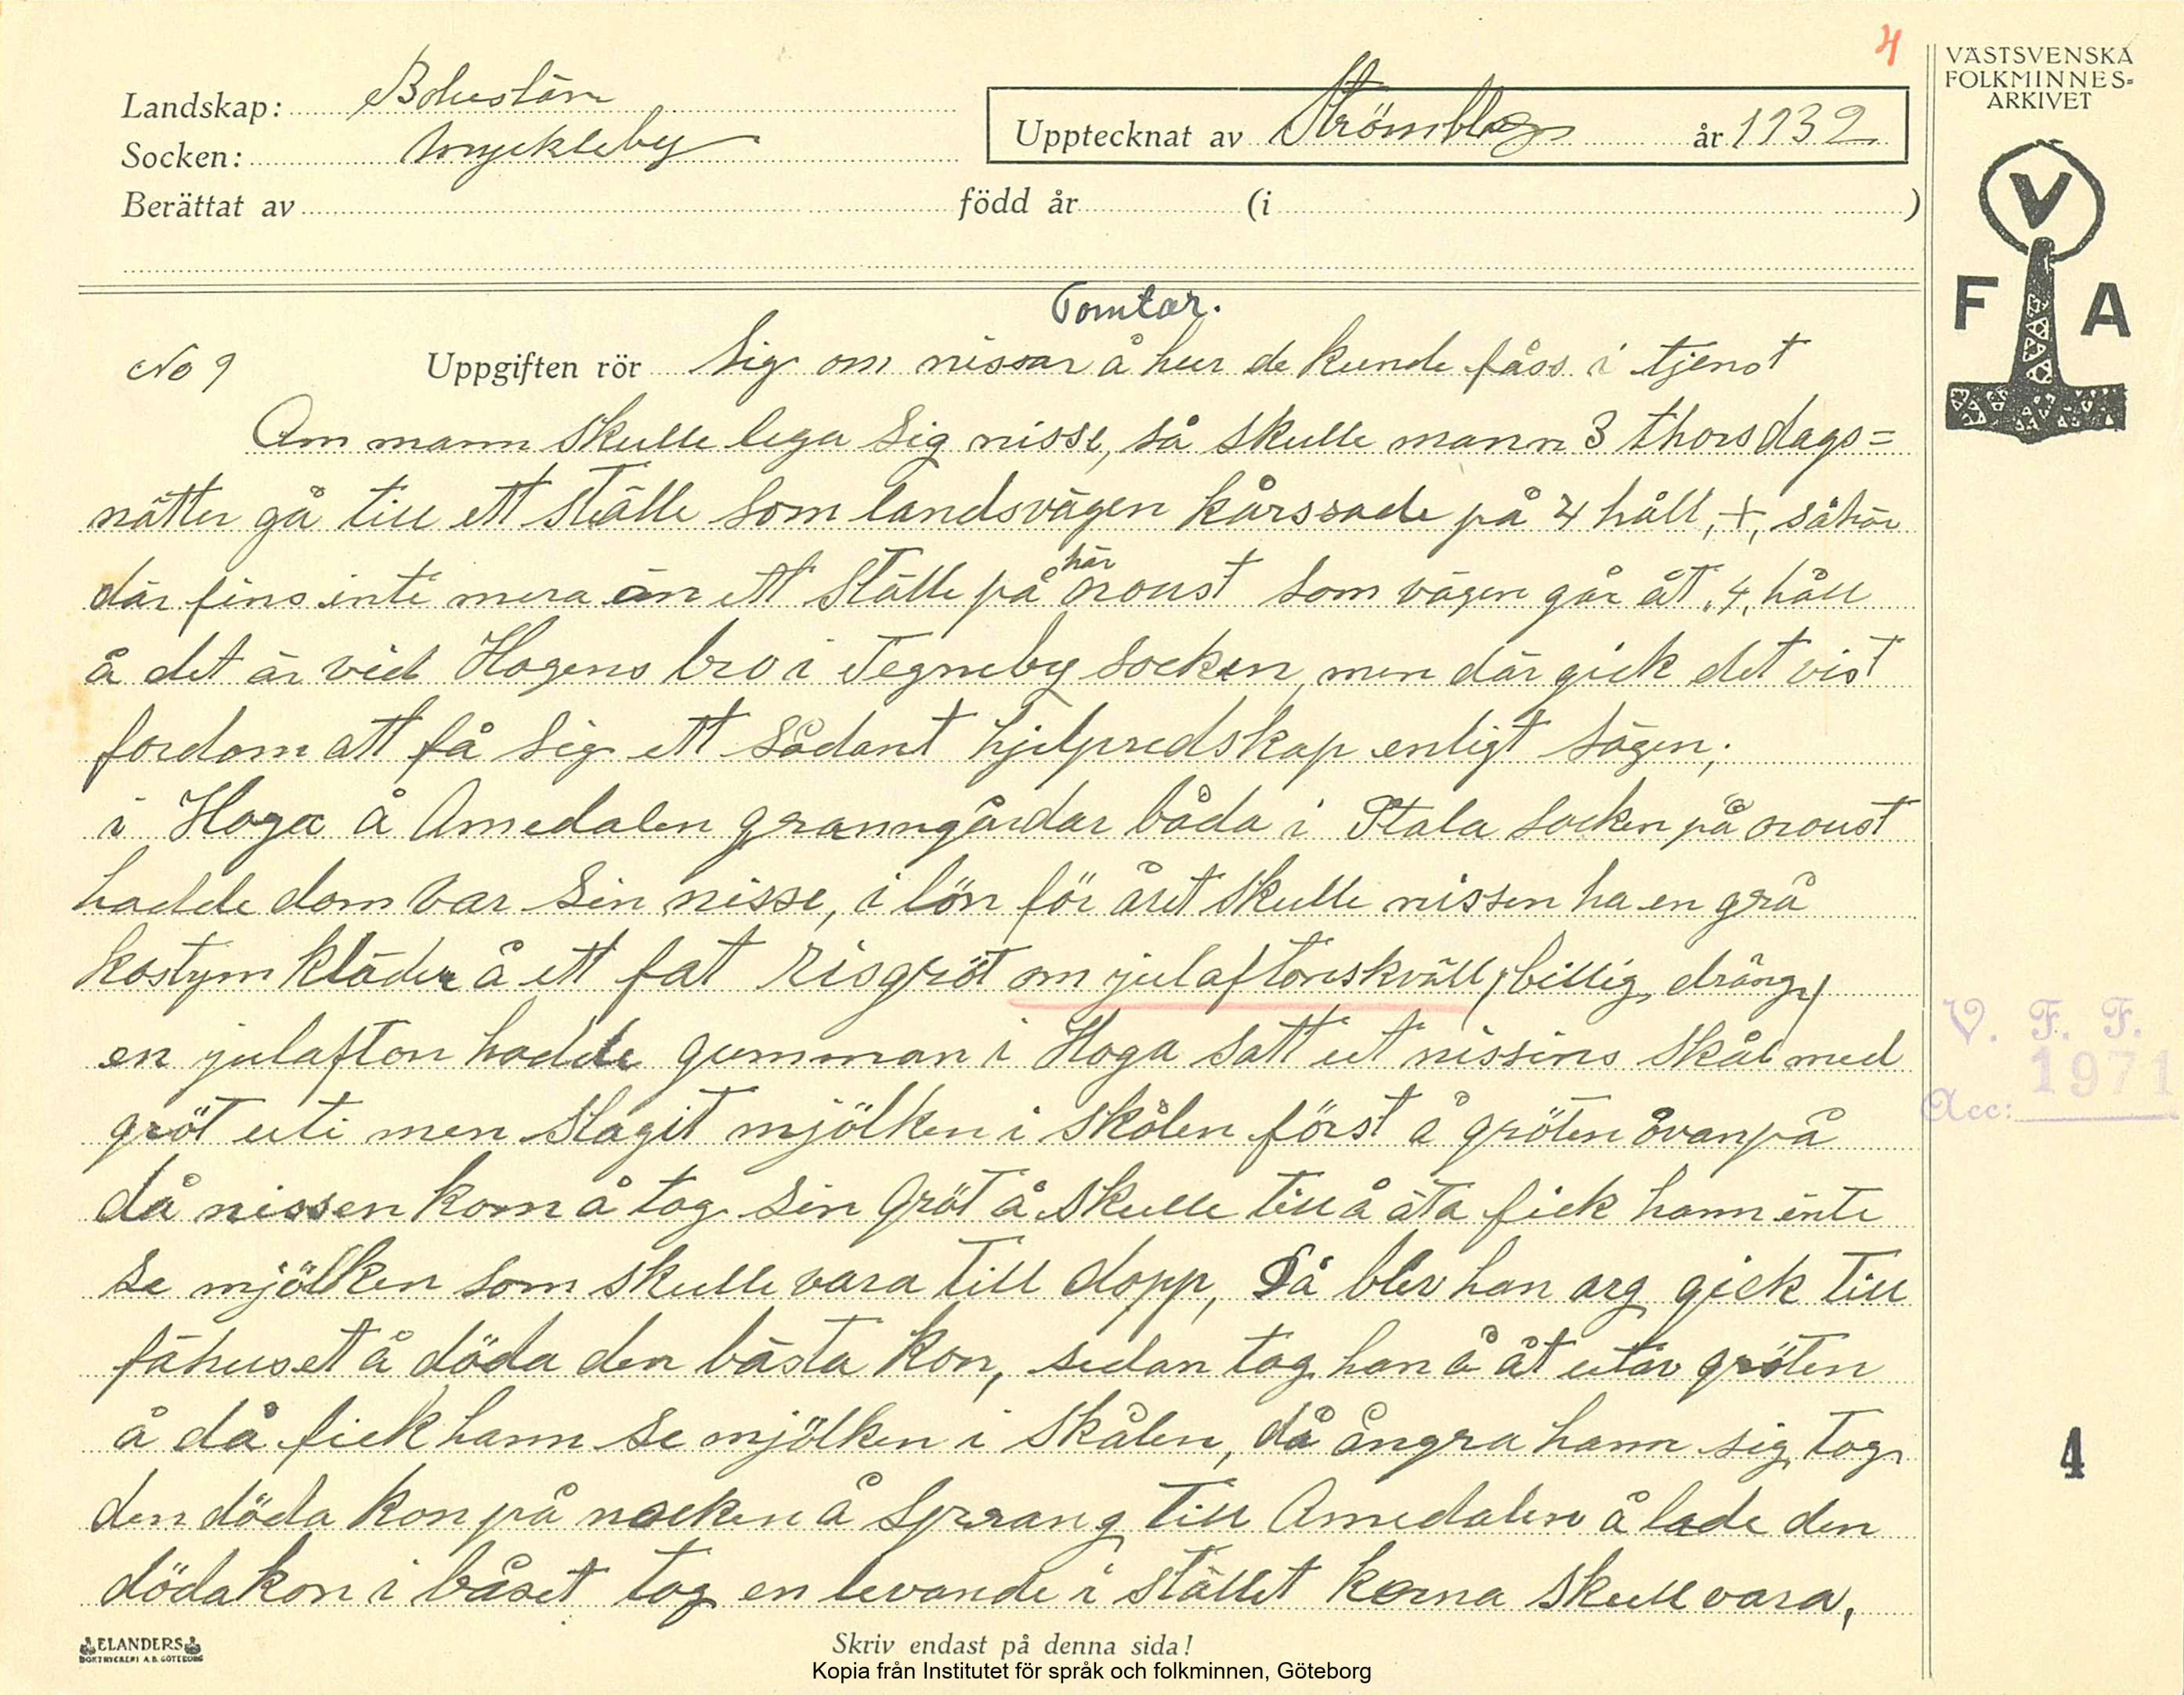 4
VÄSTSVENSKA
FOLKMINNES=
ARKIVET
Landskap: Bohuslän
Socken: Myckleby
Upptecknat av Strömblag år 1932
Berättat av född år (i )
V
F A
Tomtar.
No 9 Uppgiften rör Sig om nissar å hur de kunde fåss i tjenst
Om mann skulle lega sig nisse, så skulle mann 3 thorsdags=
nätter gå till ett ställe som landsvägen kårssade på 4 håll, +, såhär
där fins inte mera än ett ställe på här oroust som vägen går åt 4, håll
å det är vid Hogens bro i Tegneby socken, men där gick det vist
fordom att få sig ett sådant hjelpredskap enligt sägen;
i Hoga å Amedalen granngårdar båda i Stala socken på oroust
hadde dom var sin nisse, i lön för året skulle nissen ha en grå
kostym kläder å ett fat risgröt om julaftonskväll, (billig, dräng,)
en julafton hadde gumman i Hoga satt ut nissens skål med
gröt uti men slagit mjölken i skålen först å gröten åvanpå
då nissen kom å tog sin gröt å skulle till å äta fick hann inte
se mjölken som skulle vara till dopp, Då blev han arg gick till
fähuset å döda den bästa kon, sedan tog han å åt utav gröten
å då fick hann se mjölken i skålen, då ångra hann sig, tog
den döda kon på nacken å sprang till Amedalen å lade den
döda kon i båset tog en levande i stället korna skull vara,
V. F. F.
1971
Acc:
4
ELANDERS
BOKTRYCKERI A.B. GÖTEBORG
Skriv endast på denna sida!
Kopia från Institutet för språk och folkminnen, Göteborg